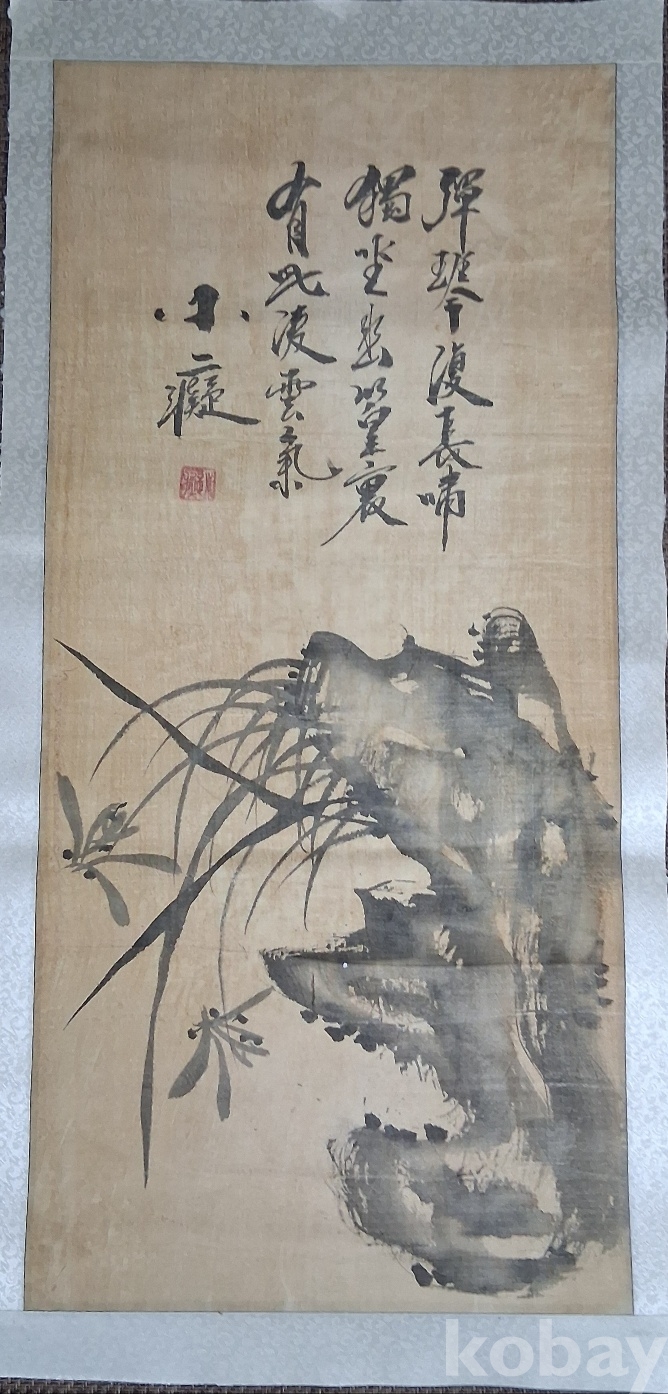 彈琴復長嘯
獨坐幽篁裏
有此凌雲氣
小癡
kobay